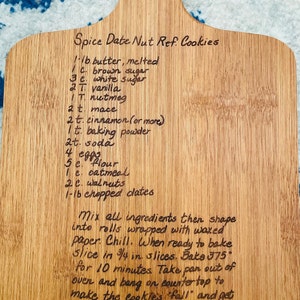 Spice Date Nut Ref. Cookies
1-lb butter, melted
1 c. brown sugar
3 c. white sugar
2 T. vanilla
1 T. nutmeg
2 t. mace
2 t. cinnamon (or more)
1 t. baking powder
2 t. soda
4 eggs
5 c. flour
1 c. oatmeal
2 c. walnuts
1-lb chopped dates
Mix all ingredients then shape
into rolls wrapped with waxed
paper. Chill. When ready to bake
slice in 1/4 in slices. Bake 375°
for 10 minutes. Take pan out of
oven and bang on countertop to
make the cookies "fall" and get